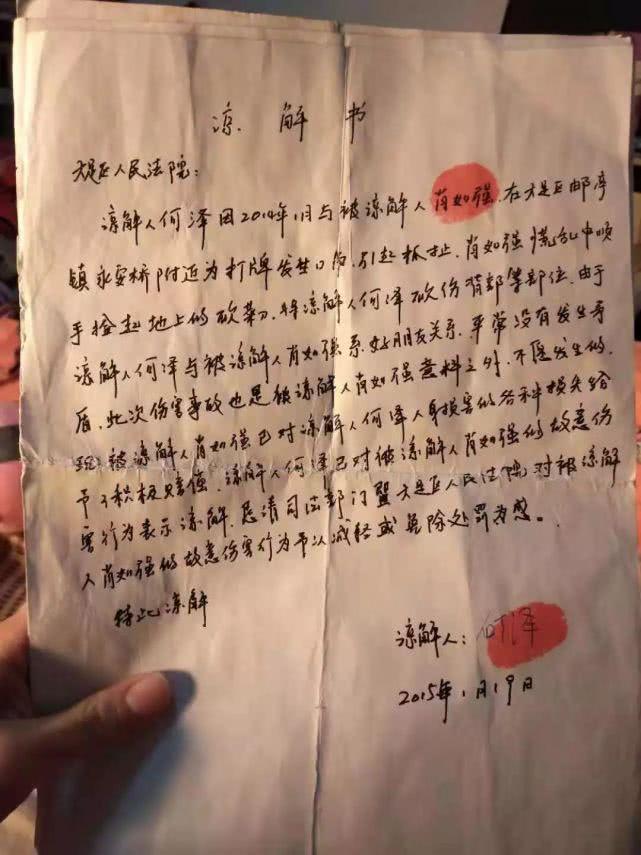 谅解书
大足区人民法院：
谅解人何泽因2014年1月与被谅解人肖如强在大足区邮亭
镇永安桥附近为打牌发生口角,引起抓扯.肖如强慌乱中顺
手捡起地上的砍菜刀.将谅解人何泽砍伤背部等部位.由于
谅解人何泽与被谅解人肖如强系好朋友关系.平常没有发生矛
盾.此次伤害事故也是被谅解人肖如强意料之外.不愿发生的.
现被谅解人肖如强已对谅解人何泽人身损害的各种损失给
予了积极赔偿.谅解人何泽已对被谅解人肖如强的故意伤
害行为表示谅解.恳请司法部门暨大足区人民法院对被谅解
人肖如强的故意伤害行为予以减轻或免除处罚为感。
特此谅解
谅解人：何泽
2015年1月19日